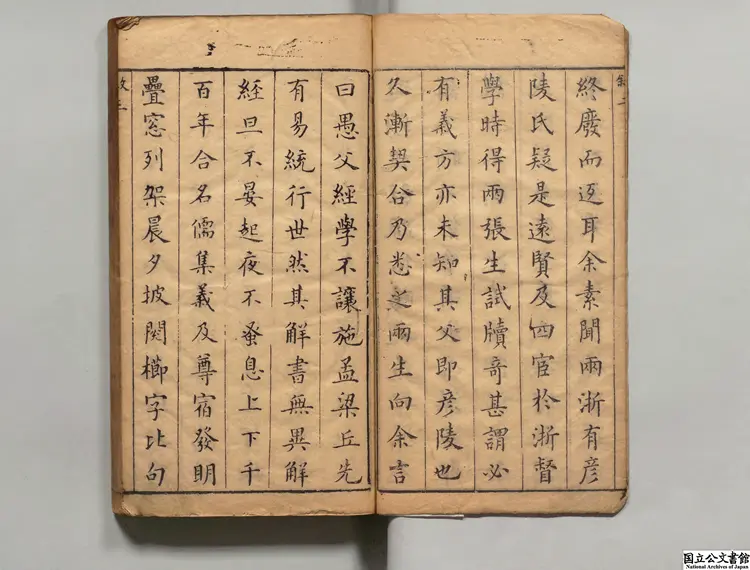 終廢而返耳余素聞兩浙有彥
陵氏疑是遠賢及四官於浙督
學時得兩張生試牘奇甚謂必
有義方亦未知其父即彥陵也
久漸契合乃悉之兩生向余言
曰愚父經學不讓施孟梁丘先
有易統行世然其解書無異解
經旦不晏起夜不蚤息上下千
百年合名儒集義及尊宿發明
疊窓列架晨夕披閱櫛字比句
国立公文書館
National Archives of Japan